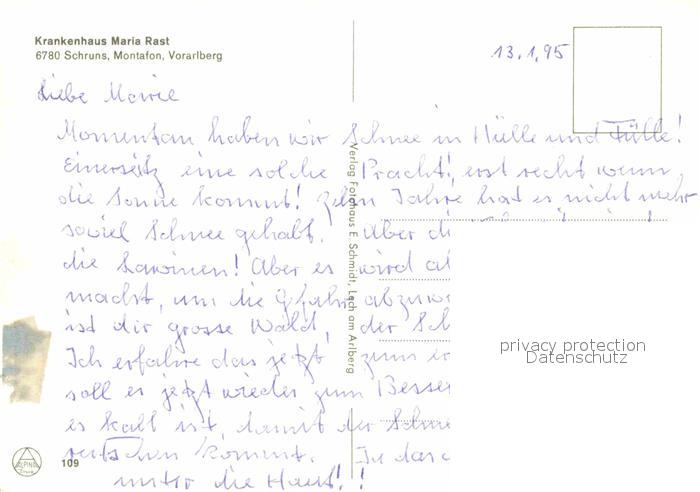 Krankenhaus Maria Rast
6780 Schruns, Montafon, Vorarlberg
13.1.95
Liebe Marie
Momentan haben wir Schnee in Hülle und Fülle!
Einerseitz eine solche Pracht!, erst recht wenn
die Sonne kommt! Zehn Jahre hat es nicht mehr
soviel Schnee gehabt. Aber di
die Lawinen! Aber es wird al
macht, um die Gfahr abzuwe
ist dir grosse Wald, der Sch
Ich erfahre das jetzt zum er
soll es jetzt wieder zum Besser
es kalt ist, damit der Schne
rutschen kommt. In das
unter die Haut!!
Verlag Fotohaus E. Schmidt, Lech am Arlberg
privacy protection
Datenschutz
ALPINA
109